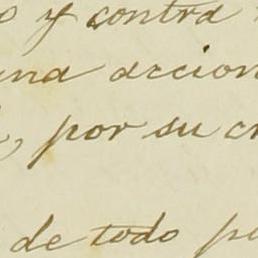 y contra
una accion
, por su
de todo